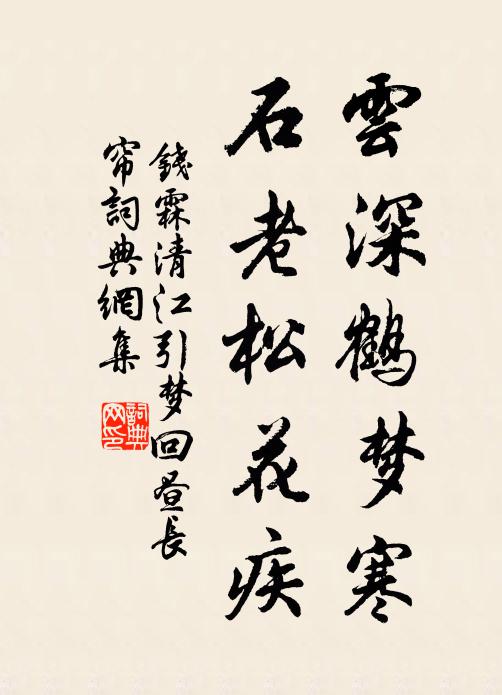 雲深鶴梦寒
石老松花疾
錢霖清江引梦回昼長
帘詞典網集
詞典网印